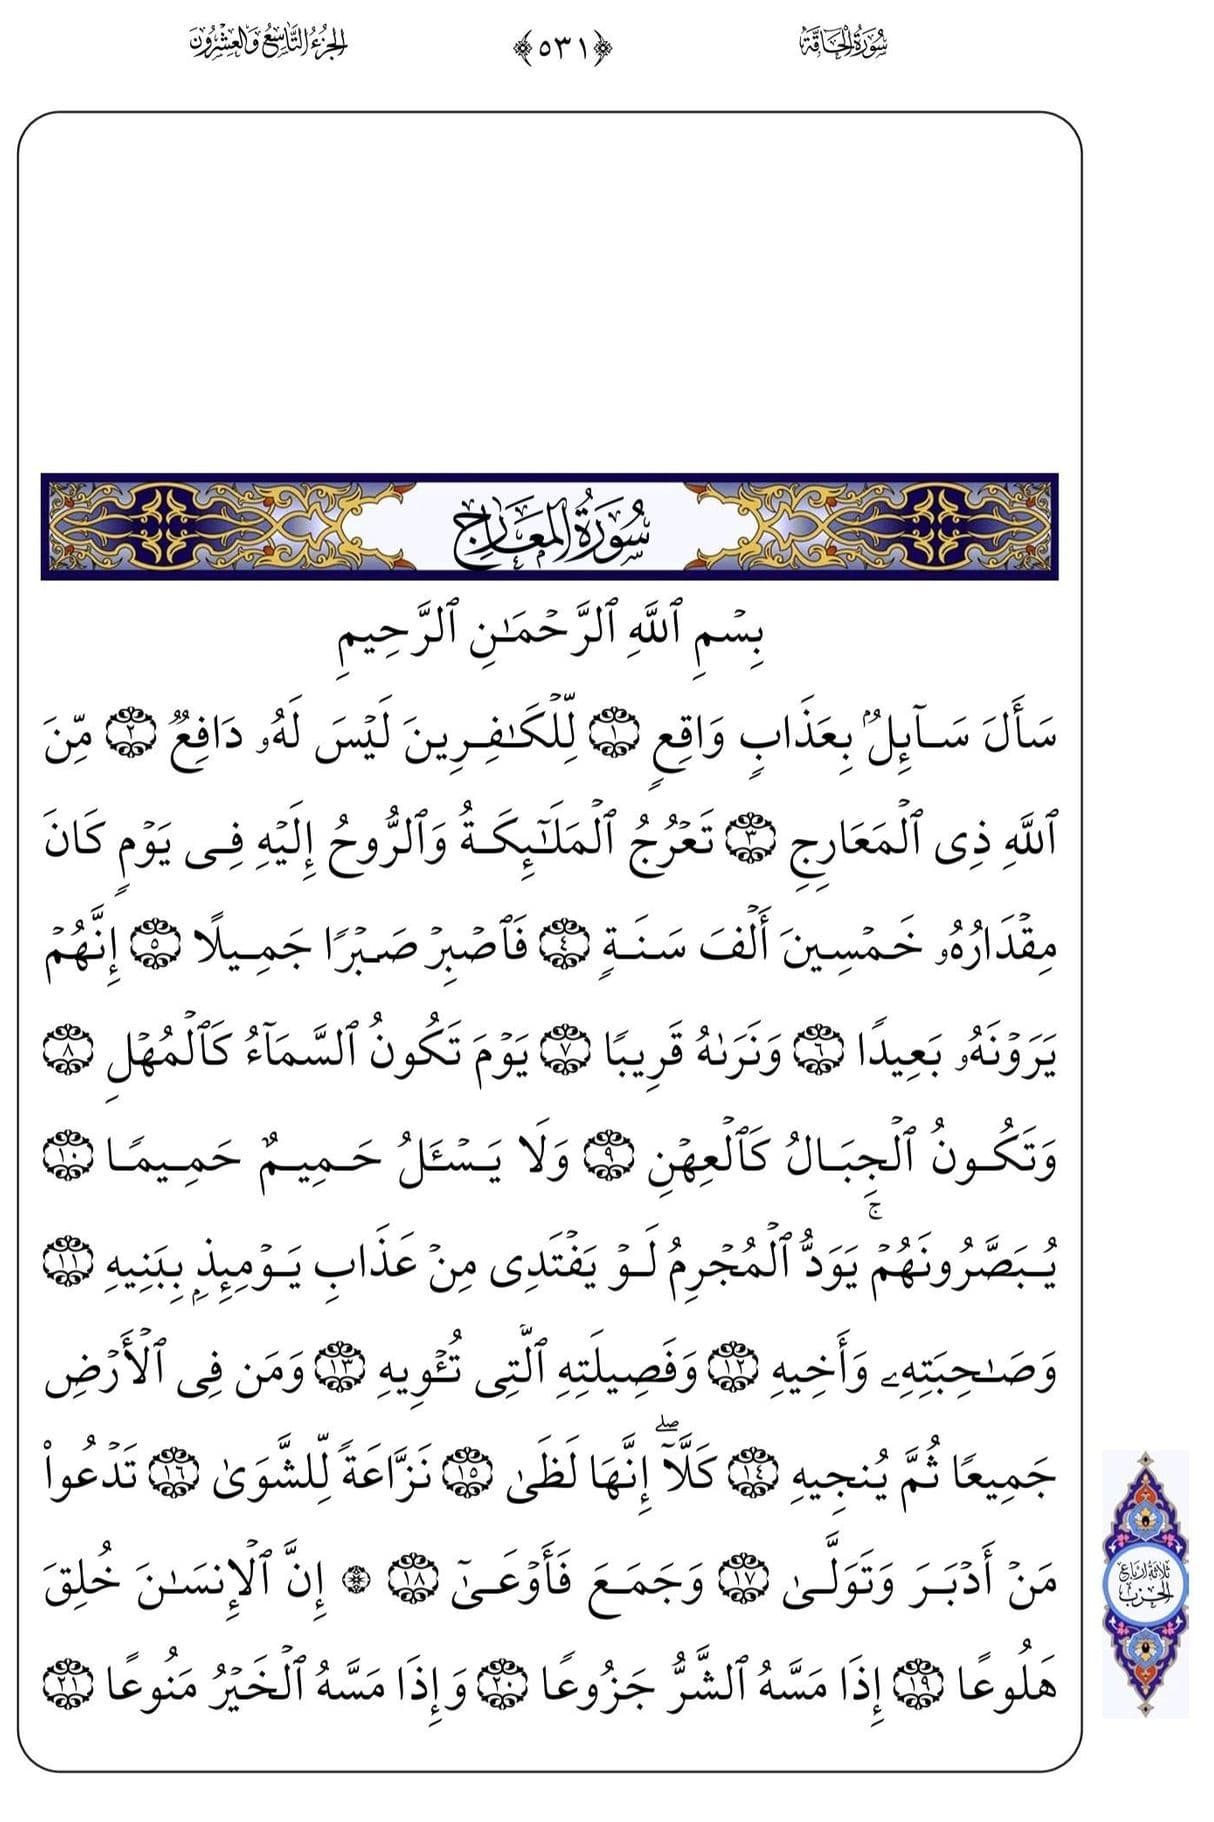 سُورَةُ الحَاقَّةِ ﴿٥٣١﴾ الجُزءُ التَّاسِعُ وَالعِشْرُونَ
سُورَةُ المَعَارِجِ
بِسۡمِ ٱللَّهِ ٱلرَّحۡمَٰنِ ٱلرَّحِيمِ
سَأَلَ سَآئِلُۢ بِعَذَابٖ وَاقِعٖ ١ لِّلۡكَٰفِرِينَ لَيۡسَ لَهُۥ دَافِعٞ ٢ مِّنَ
ٱللَّهِ ذِي ٱلۡمَعَارِجِ ٣ تَعۡرُجُ ٱلۡمَلَٰٓئِكَةُ وَٱلرُّوحُ إِلَيۡهِ فِي يَوۡمٖ كَانَ
مِقۡدَارُهُۥ خَمۡسِينَ أَلۡفَ سَنَةٖ ٤ فَٱصۡبِرۡ صَبۡرٗا جَمِيلًا ٥ إِنَّهُمۡ
يَرَوۡنَهُۥ بَعِيدٗا ٦ وَنَرَىٰهُ قَرِيبٗا ٧ يَوۡمَ تَكُونُ ٱلسَّمَآءُ كَٱلۡمُهۡلِ ٨
وَتَكُونُ ٱلۡجِبَالُ كَٱلۡعِهۡنِ ٩ وَلَا يَسۡـَٔلُ حَمِيمٌ حَمِيمٗا ١٠
يُبَصَّرُونَهُمۡۚ يَوَدُّ ٱلۡمُجۡرِمُ لَوۡ يَفۡتَدِي مِنۡ عَذَابِ يَوۡمِئِذِۭ بِبَنِيهِ ١١
وَصَٰحِبَتِهِۦ وَأَخِيهِ ١٢ وَفَصِيلَتِهِ ٱلَّتِي تُـٔۡوِيهِ ١٣ وَمَن فِي ٱلۡأَرۡضِ
جَمِيعٗا ثُمَّ يُنجِيهِ ١٤ كَلَّآۖ إِنَّهَا لَظَىٰ ١٥ نَزَّاعَةٗ لِّلشَّوَىٰ ١٦ تَدۡعُواْ
مَنۡ أَدۡبَرَ وَتَوَلَّىٰ ١٧ وَجَمَعَ فَأَوۡعَىٰٓ ١٨ ۞ إِنَّ ٱلۡإِنسَٰنَ خُلِقَ
هَلُوعًا ١٩ إِذَا مَسَّهُ ٱلشَّرُّ جَزُوعٗا ٢٠ وَإِذَا مَسَّهُ ٱلۡخَيۡرُ مَنُوعًا ٢١
ثلاثة أرباع
الحزب